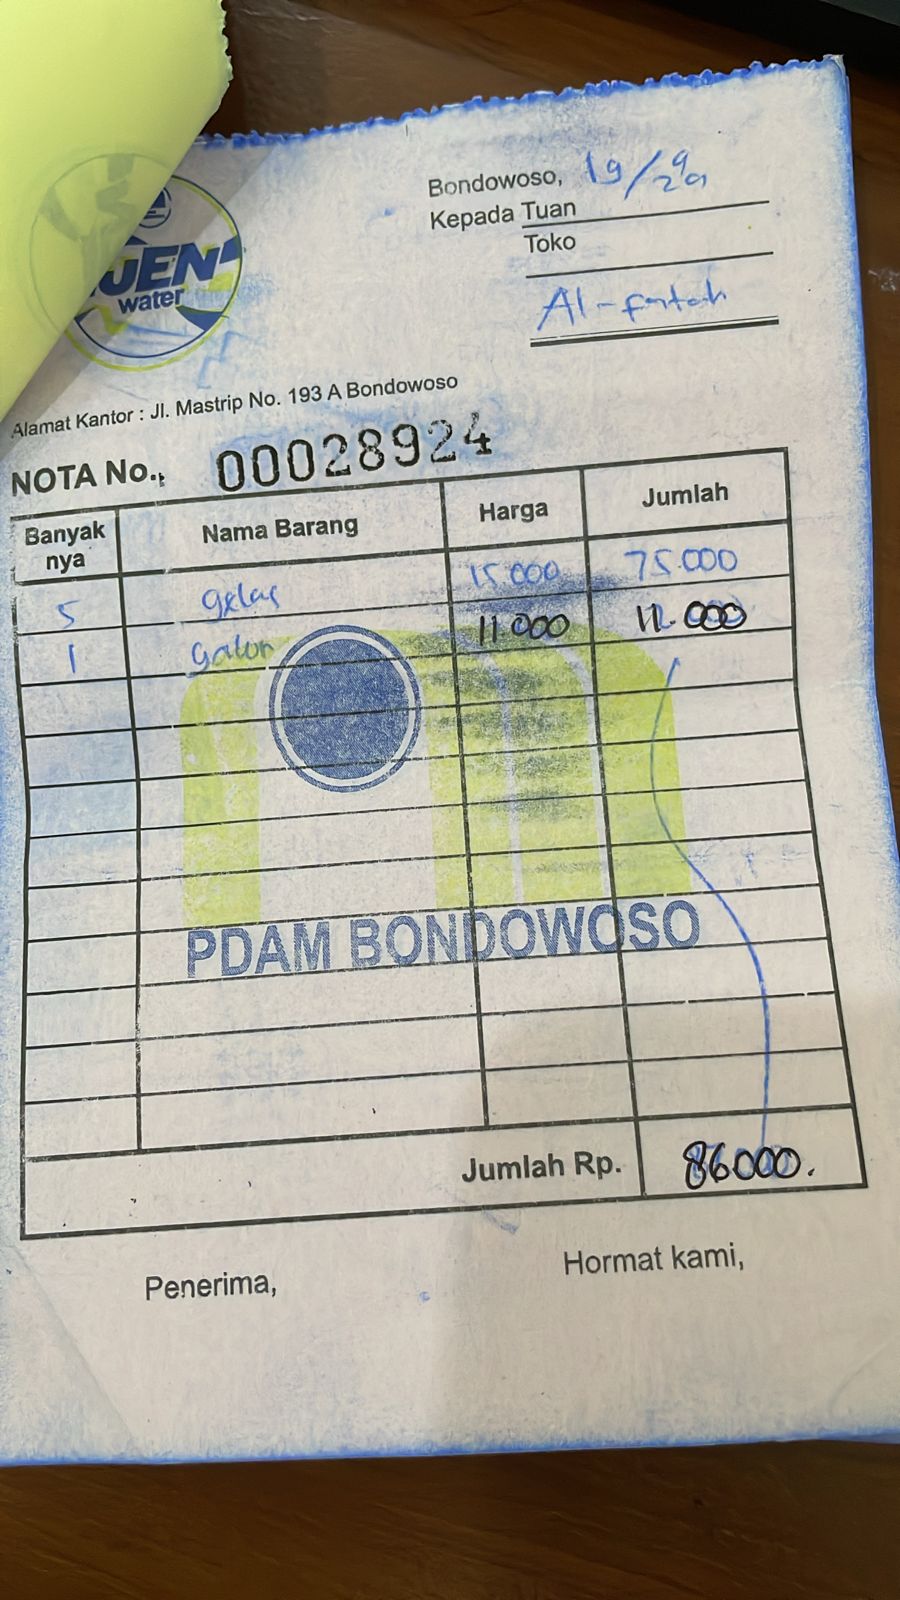 UEN
water
Bondowoso, 19/9
Kepada Tuan
Toko
Al-fatah
Alamat Kantor : Jl. Mastrip No. 193 A Bondowoso
NOTA No., 00028924
Banyak nya Nama Barang Harga Jumlah
5 gelas 15.000 75.000
1 galon 11.000 11.000
PDAM BONDOWOSO
Jumlah Rp. 86000.
Penerima, Hormat kami,